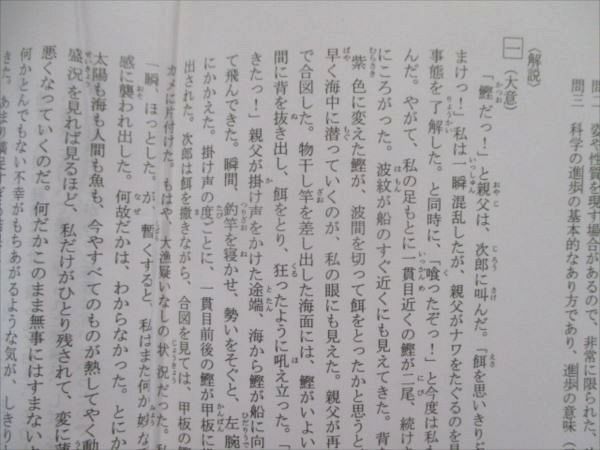 問二　姿や性質を現す場合があるので、非常に限られた、
問三　科学の進歩の基本的なあり方であり、進歩の意味（
〈解説〉
一
〈大意〉
「鰹だっ！」と親父は、次郎に叫んだ。「餌を思いきり
まけっ！」私は一瞬混乱したが、親父がナワをたぐるのを見
事態を了解した。と同時に、「喰ったぞっ！」と今度は私
んだ。やがて、私の足もとに一貫目近くの鰹が二尾、続け
にころがった。波紋が船のすぐ近くにも見えてきた。背
紫色に変えた鰹が、波間を切って餌をとったかと思うと
早く海中に潜っていくのが、私の眼にも見えた。親父が再
で合図した。物干し竿を差し出した海面には、鰹がいよい
間に背を抜き出し、餌をとり、狂ったように吼え立った。「
きたっ！」親父が掛け声をかけた途端、海から鰹が船に向
て飛んできた。瞬間、釣竿を寝かせ、勢いをそぐと、左腕
にかかえた。掛け声の度ごとに、一貫目前後の鰹が甲板に
出された。次郎は餌を撒きながら、合図を見ては、甲板の鰹
カメに片付けた。もはや、大漁疑いなしの状況だった。私
一瞬、ほっとした。が、暫くすると、私はまた何か妙な
感に襲われ出した。何故だかは、わからなかった。とにか
太陽も海も人間も魚も、今やすべてのものが熱してやく動
盛況を見れば見るほど、私だけがひとり残されて、変に薄
悪くなっていくのだ。何だかこのまま無事にはすまないと
何かとんでもない不幸がもちあがるような気が、しきりと
きた。あまり満足すぎ